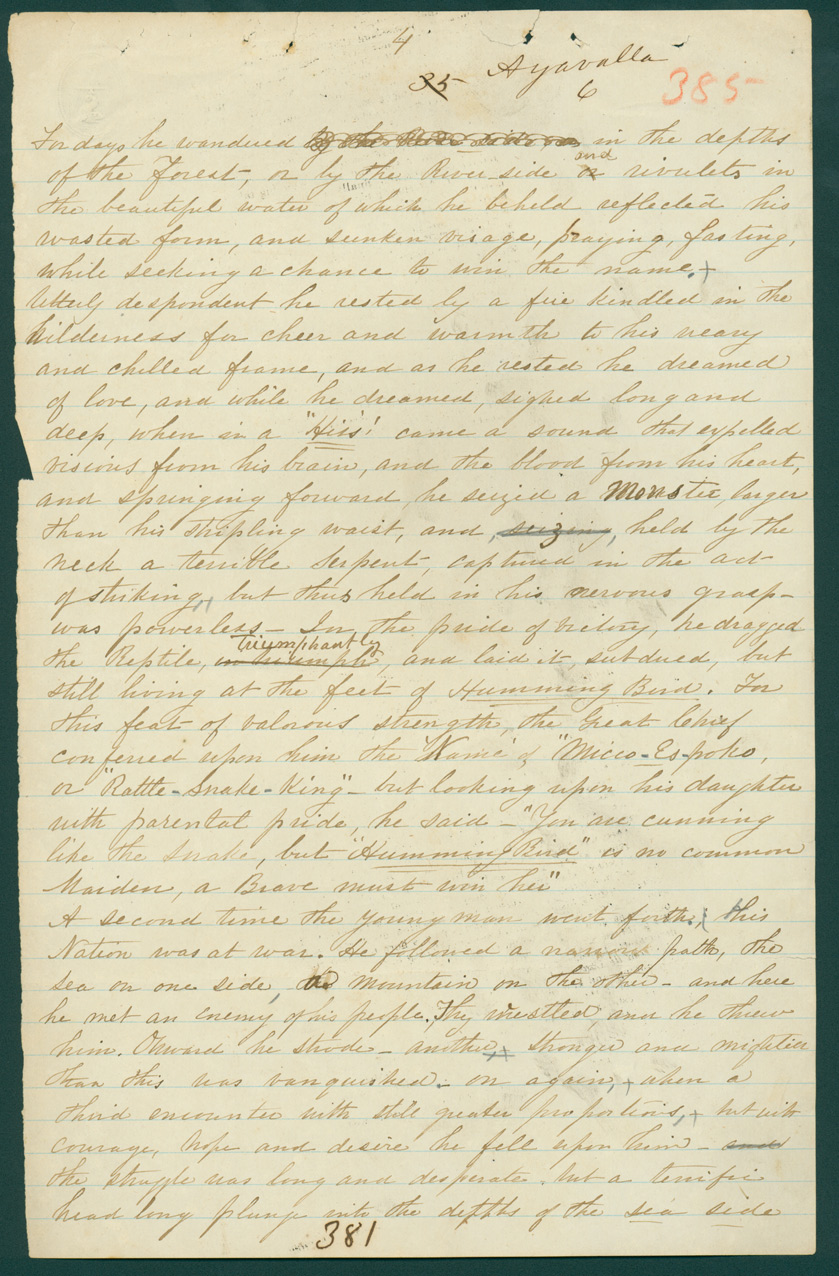 4
35 Ayavalla 385
6
For days he wandered by the River side or in the depths
of the Forest, or by the River side or and rivulets in
the beautiful water of which he beheld reflected his
wasted form, and sunken visage, praying, fasting,
while seeking a chance to win the name.+
Utterly despondent he rested by a fire kindled in the
wilderness for cheer and warmth to his weary
and chilled frame, and as he rested he dreamed
of love, and while he dreamed, sighed long and
deep, when in a "Hiss"! came a sound that expelled
visions from his brain, and the blood from his heart,
and springing forward he seized a Monster, larger
than his stripling waist, and, seizing, held by the
neck a terrible Serpent, captured in the act
of striking, but thus held in his nervous grasp—
was powerless— In the pride of victory, he dragged
the Reptile, in triumph triumphantly, and laid it, subdued, but
still living at the feet of Humming Bird. For
this feat of valorous strength, the Great Chief
conferred upon him the 'Name' of "Micco-Es-poko,
or "Rattle-Snake-King"— but looking upon his daughter
with parental pride, he said—"You are cunning
like the Snake, but "Humming Bird" is no common
Maiden, a Brave must win her"
A second time the young man went forth, his
Nation was at war. He followed a narrow path, the
sea on one side, the mountain on the other— and here
he met an enemy of his people. They wrestled and he threw
him. Onward he strode— another,+ stronger and mightier
than this was vanquished.— on again,+ when a
third encounter with still greater proportions,+ but with
courage, hope and desire he fell upon him— and
the struggle was long and desperate, but a terrific
head long plunge into the depths of the sea side
381